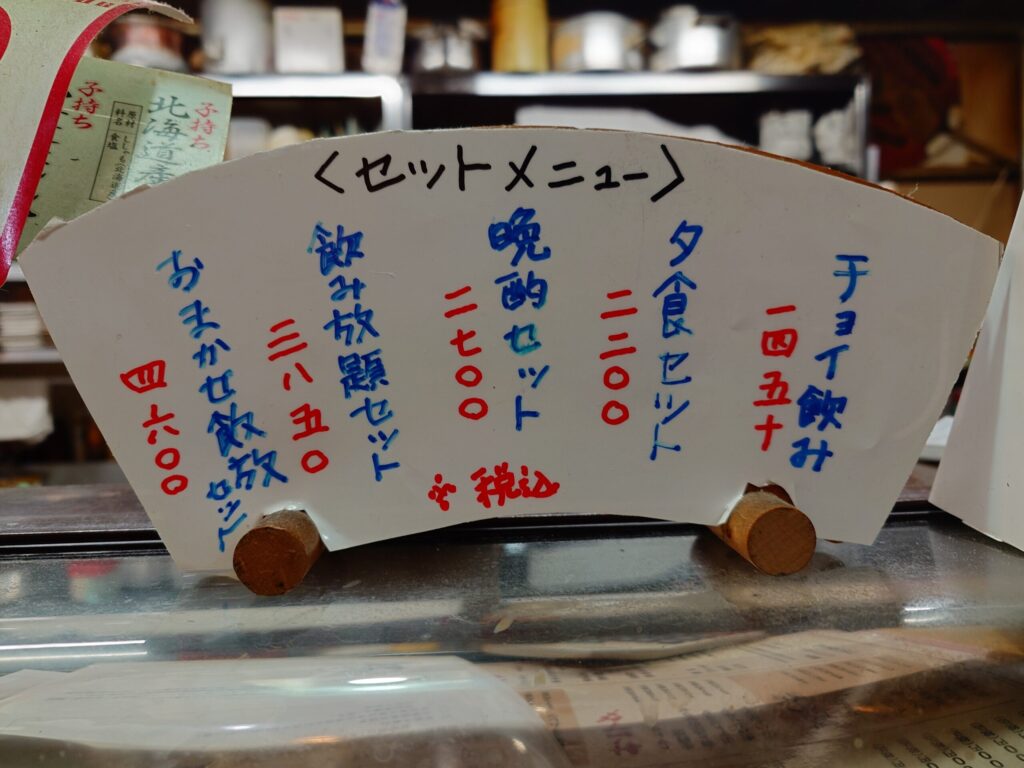 〈セットメニュー〉
チョイ飲み
一四五十
夕食セット
二二〇〇
晩酌セット
二七〇〇
飲み放題セット
三八五〇
おまかせ飲放セット
四六〇〇
※税込
子持ち
北海道産
原材料名
食塩
子持ち